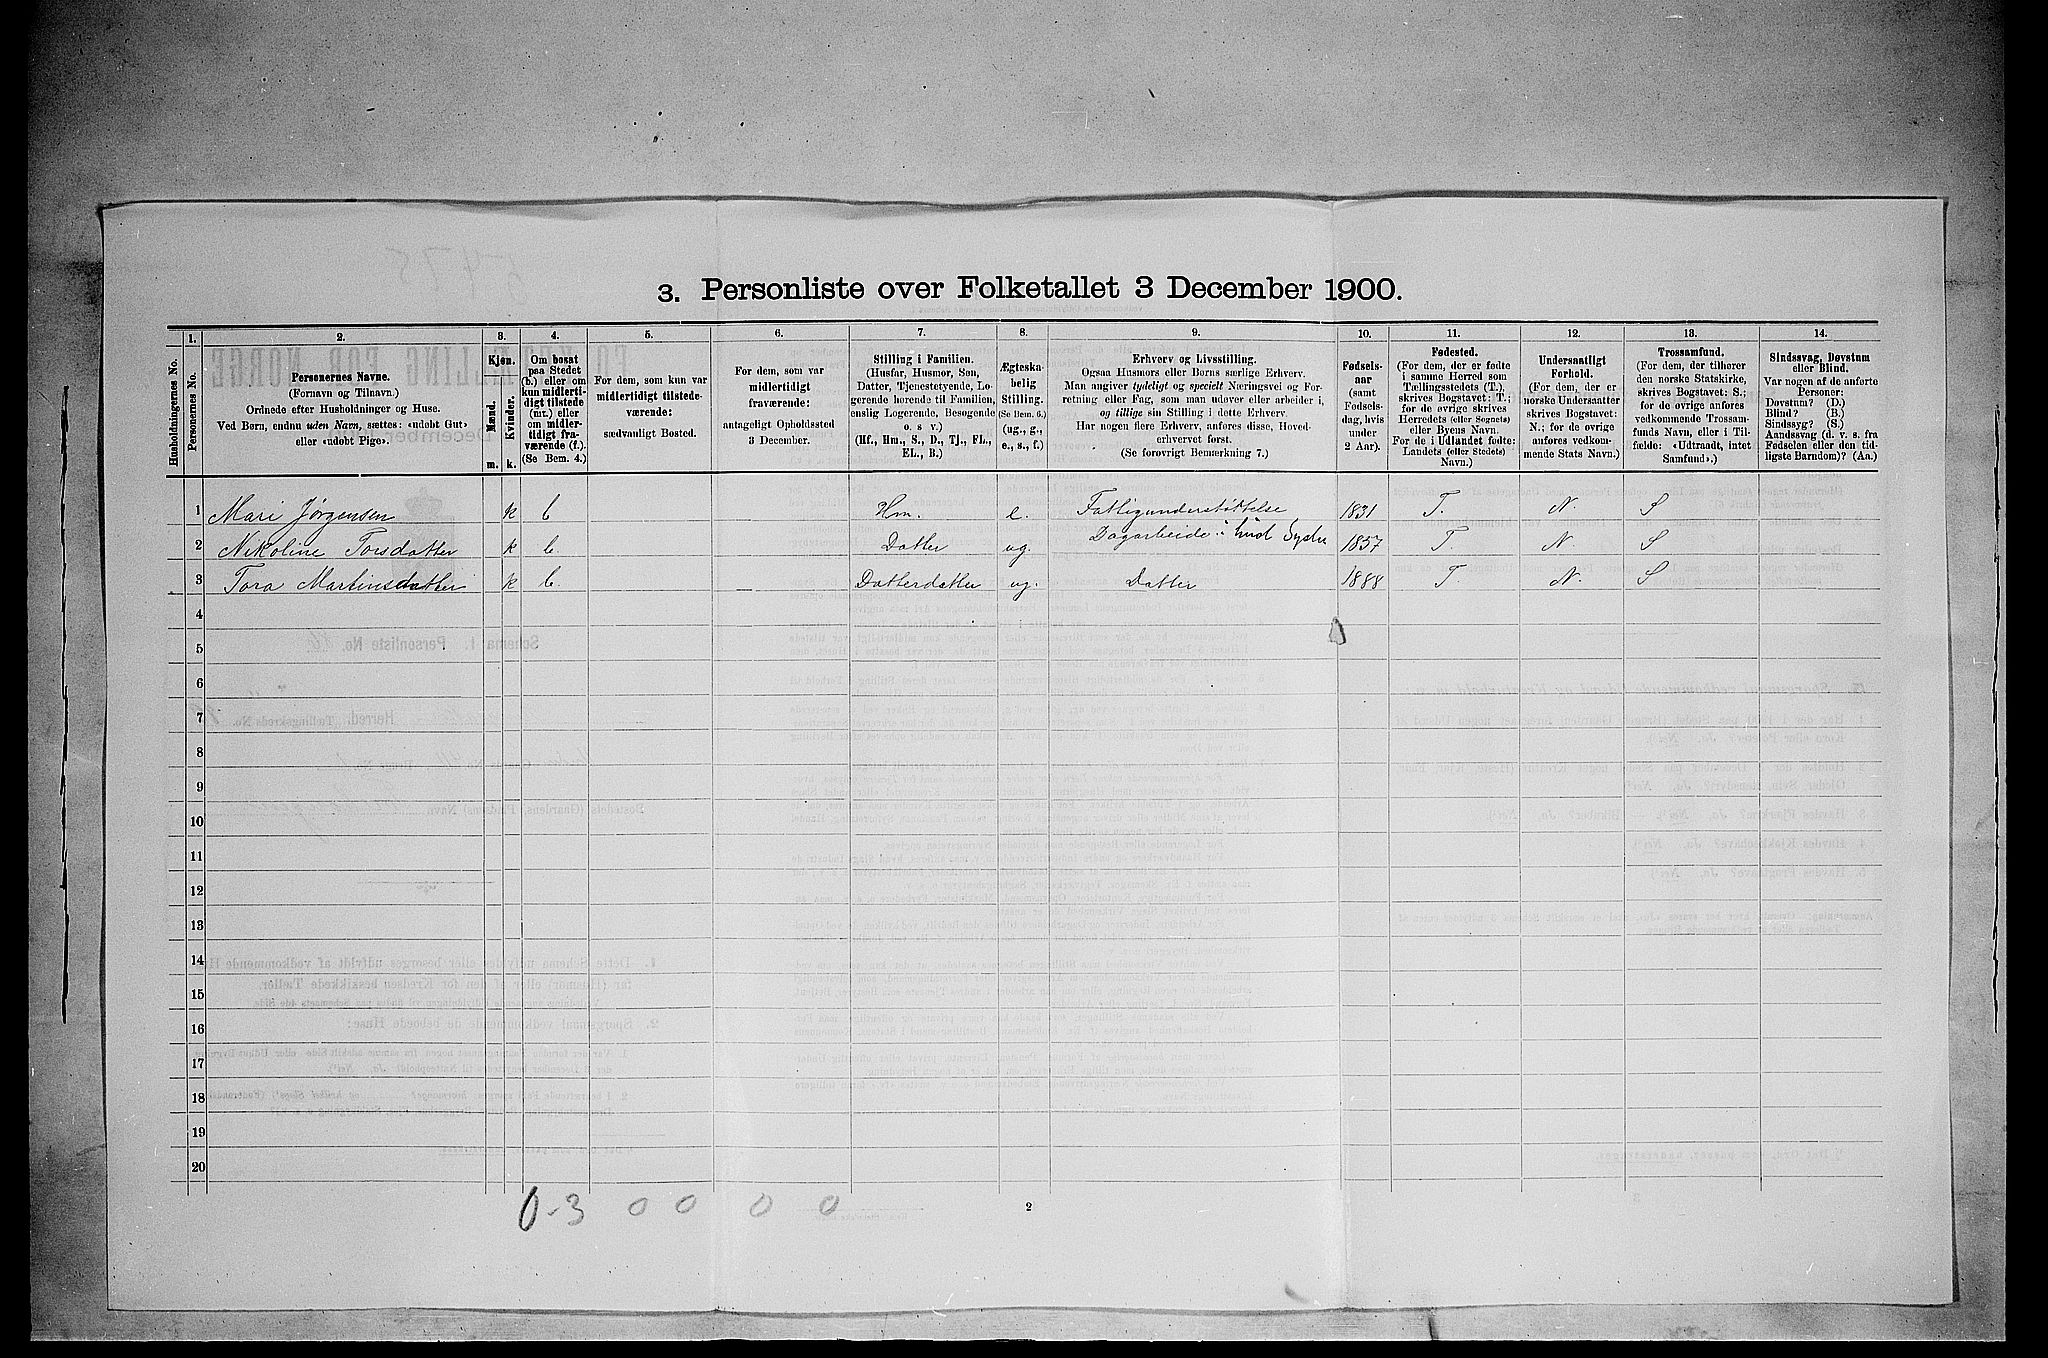 3. Personliste over Folketallet 3 December 1900.
1. 2. 3. 4. 5. 6. 7. 8. 9. 10. 11. 12. 13. 14.
Husholdningernes No.
Personernes No.
Personernes Navne.
(Fornavn og Tilnavn.)
Ordnede efter Husholdninger og Huse.
Ved Børn, endnu uden Navn, sættes: «udøbt Gut»
eller «udøbt Pige».
Kjøn.
Mænd.
Kvinder.
m. k.
Om bosat
paa Stedet
(b.) eller om
kun midlerti-
digt tilstede
(mt.) eller
om midler-
tidigt fra-
værende (f.).
(Se Bem. 4.)
For dem, som kun var
midlertidigt tilstede-
værende:
sædvanligt Bosted.
For dem, som var
midlertidigt
fraværende:
antageligt Opholdssted
3 December.
Stilling i Familien.
(Husfar, Husmor, Søn,
Datter, Tjenestetyende, Lo-
gerende hørende til Familien,
enslig Logerende, Besøgende
o. s. v.)
(Hf., Hm., S., D., Tj., FL.,
EL., B.)
Ægteska-
belig
Stilling.
(Se Bem. 6.)
(ug., g.,
e., s., f.)
Erhverv og Livsstilling.
Ogsaa Husmors eller Børns særlige Erhverv.
Man angiver tydeligt og specielt Næringsvei og For-
retning eller Fag, som man udøver eller arbeider i,
og tillige sin Stilling i dette Erhverv.
Har nogen flere Erhverv, anføres disse, Hoved-
erhvervet først.
(Se forøvrigt Bemærkning 7.)
Fødsels-
aar
(samt
Fødsels-
dag, hvis
under
2 Aar).
Fødested.
(For dem, der er fødte
i samme Herred som
Tællingsstedets (T.),
skrives Bogstavet: T.;
for de øvrige skrives
Herredets (eller Sognets)
eller Byens Navn.
For de i Udlandet fødte:
Landets (eller Stedets)
Navn.)
Undersaatligt
Forhold.
(For dem, der er
norske Undersaatter
skrives Bogstavet:
N.; for de øvrige
anføres vedkom-
mende Stats Navn.)
Trossamfund.
(For dem, der tilhører
den norske Statskirke,
skrives Bogstavet: S.;
for de øvrige anføres
vedkommende Trossam-
funds Navn, eller i Til-
fælde: «Udtraadt, intet
Samfund».)
Sindssvag, Døvstum
eller Blind.
Var nogen af de anførte
Personer:
Døvstum? (D.)
Blind? (B.)
Sindssyg? (S.)
Aandssvag (d. v. s. fra
Fødselen eller den tid-
ligste Barndom)? (Aa.)
1 Mari Jørgensen k b Hm. e. Fattigunderstøttelse 1831 T. N. S
2 Nikoline Torsdatter k b. Datter ug. Dagarbeide i 1857 T. N. S
3 Tora Martinsdatter k b. Datterdatter ug. Datter 1888 T. N. S
4
5
6
7
8
9
10
11
12
13
14
15
16
17
18
19
20
0-3 0 0 0 0
2